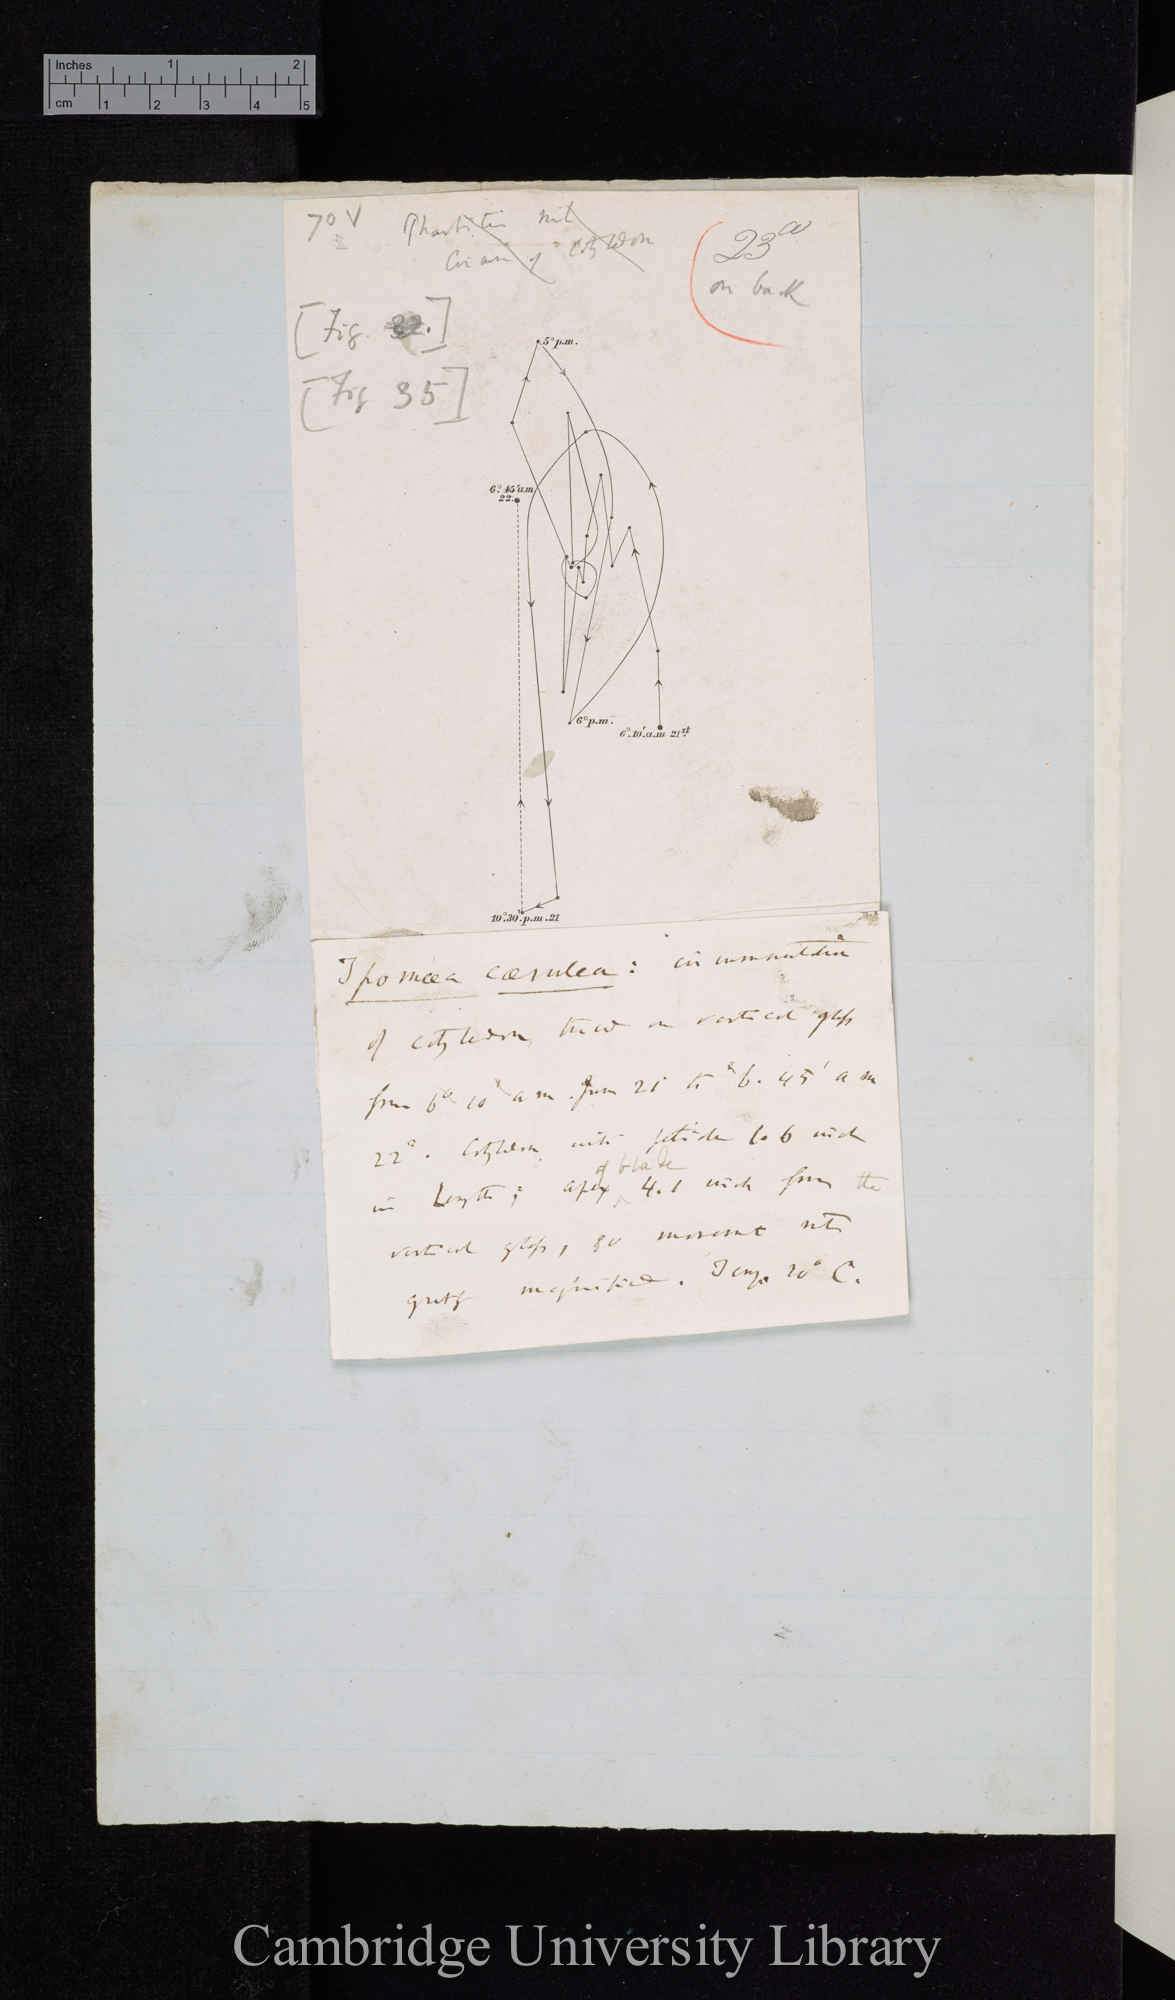 Inches 1 2
cm 1 2 3 4 5
70 V
Pharbitis nil
Circum of cotyledon
23 a
on back
[Fig. 32.]
[Fig 35]
5° p.m.
6°.45' a.m
22.
6° p.m.
6°.10'.a.m 21st
10°.30'.p.m.21
Ipomœa cærulea: circumnutation
of cotyledon, traced on vertical glass
from 6° 10' a m June 21 to 6. 45' a m
22°. Cotyledon with petiole 1.6 inch
in length; apex of blade 4.1 inch from the
vertical glass, so movement not
greatly magnified. Temp. 20° C.
Cambridge University Library